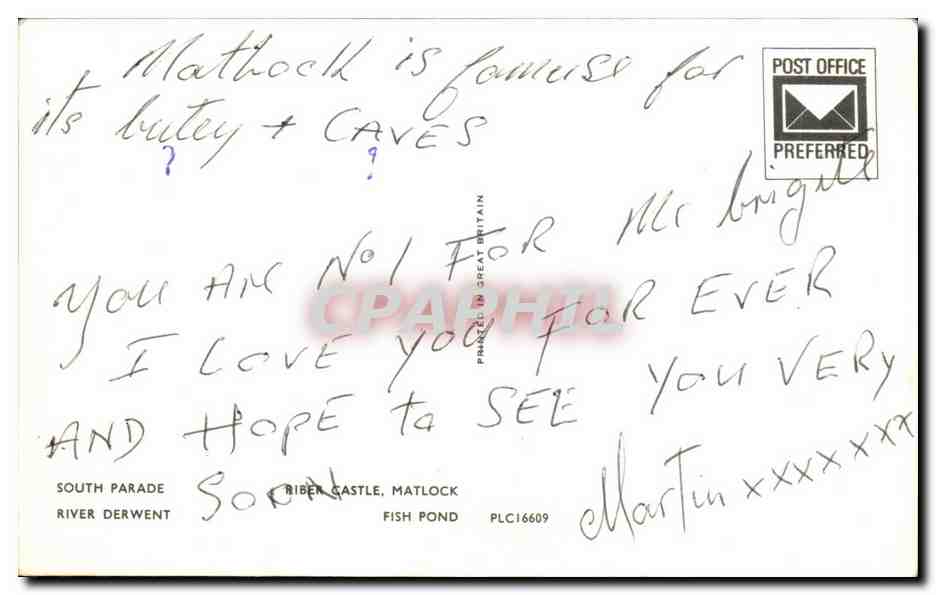 Mathock is famuse for
its butey + CAVES
? ?
POST OFFICE
PREFERRED
YOU ARE No 1 FOR Me brigitte
I LOVE YOU FOR EVER
AND HOPE to SEE YOU VERY
SOON
Martin xxxxxxx
PRINTED IN GREAT BRITAIN
CPAPHIL
SOUTH PARADE
RIBER CASTLE, MATLOCK
RIVER DERWENT
FISH POND
PLC16609